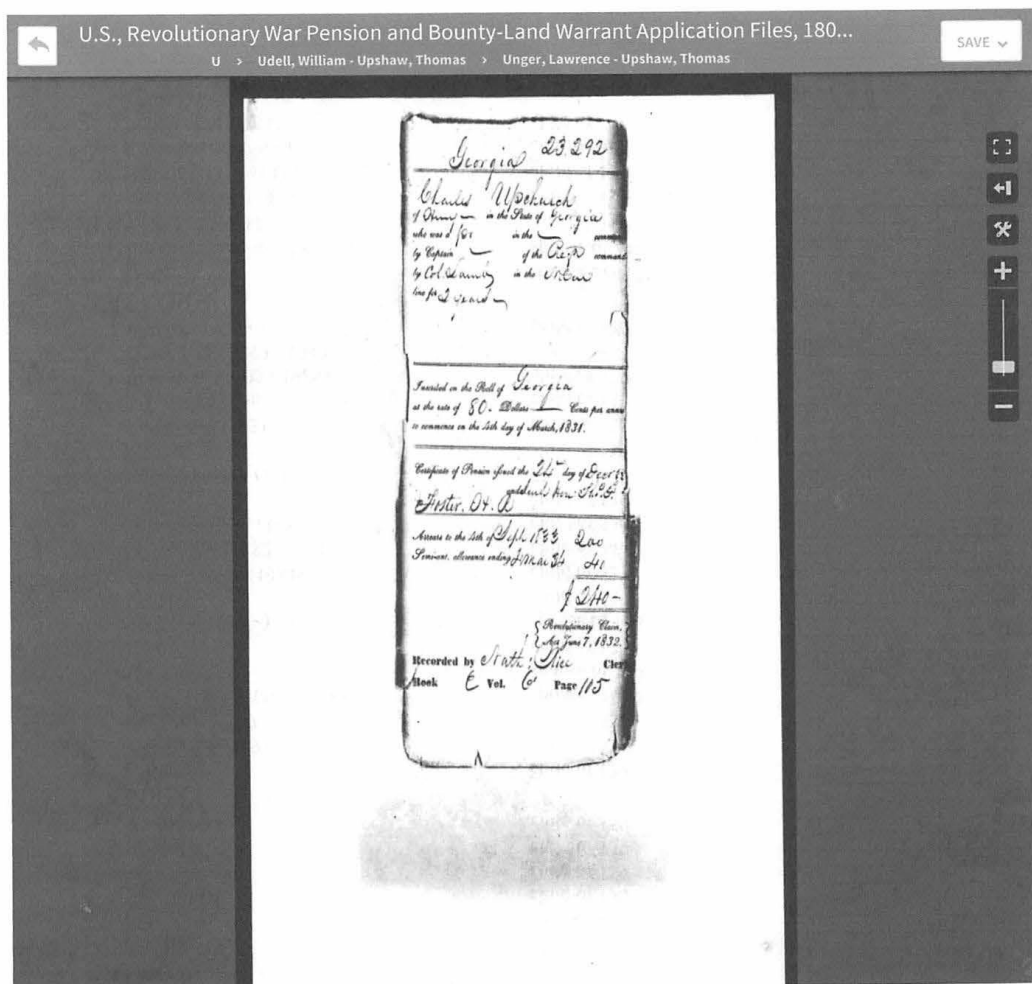 U.S., Revolutionary War Pension and Bounty-Land Warrant Application Files, 180...
SAVE
U > Udell, William - Upshaw, Thomas > Unger, Lawrence - Upshaw, Thomas
Georgia 23.292
Charles Upchurch
of Henry in the State of Georgia
who was a in the
by Captain of the command
by Col in the
line for 2 years
Inscribed on the Roll of Georgia
at the rate of 80. Dollars Cents per annu
to commence on the 4th day of March, 1831.
Certificate of Pension issued the 24 day of
Foster,
Arrears to the 4th of Sept 1833 200
Semi-anl. allowance ending 4 Mar 34 40
$ 240-
Revolutionary Claim,
Act June 7, 1832.
Recorded by Nath: Rice Cler
Book E Vol. 6 Page 115